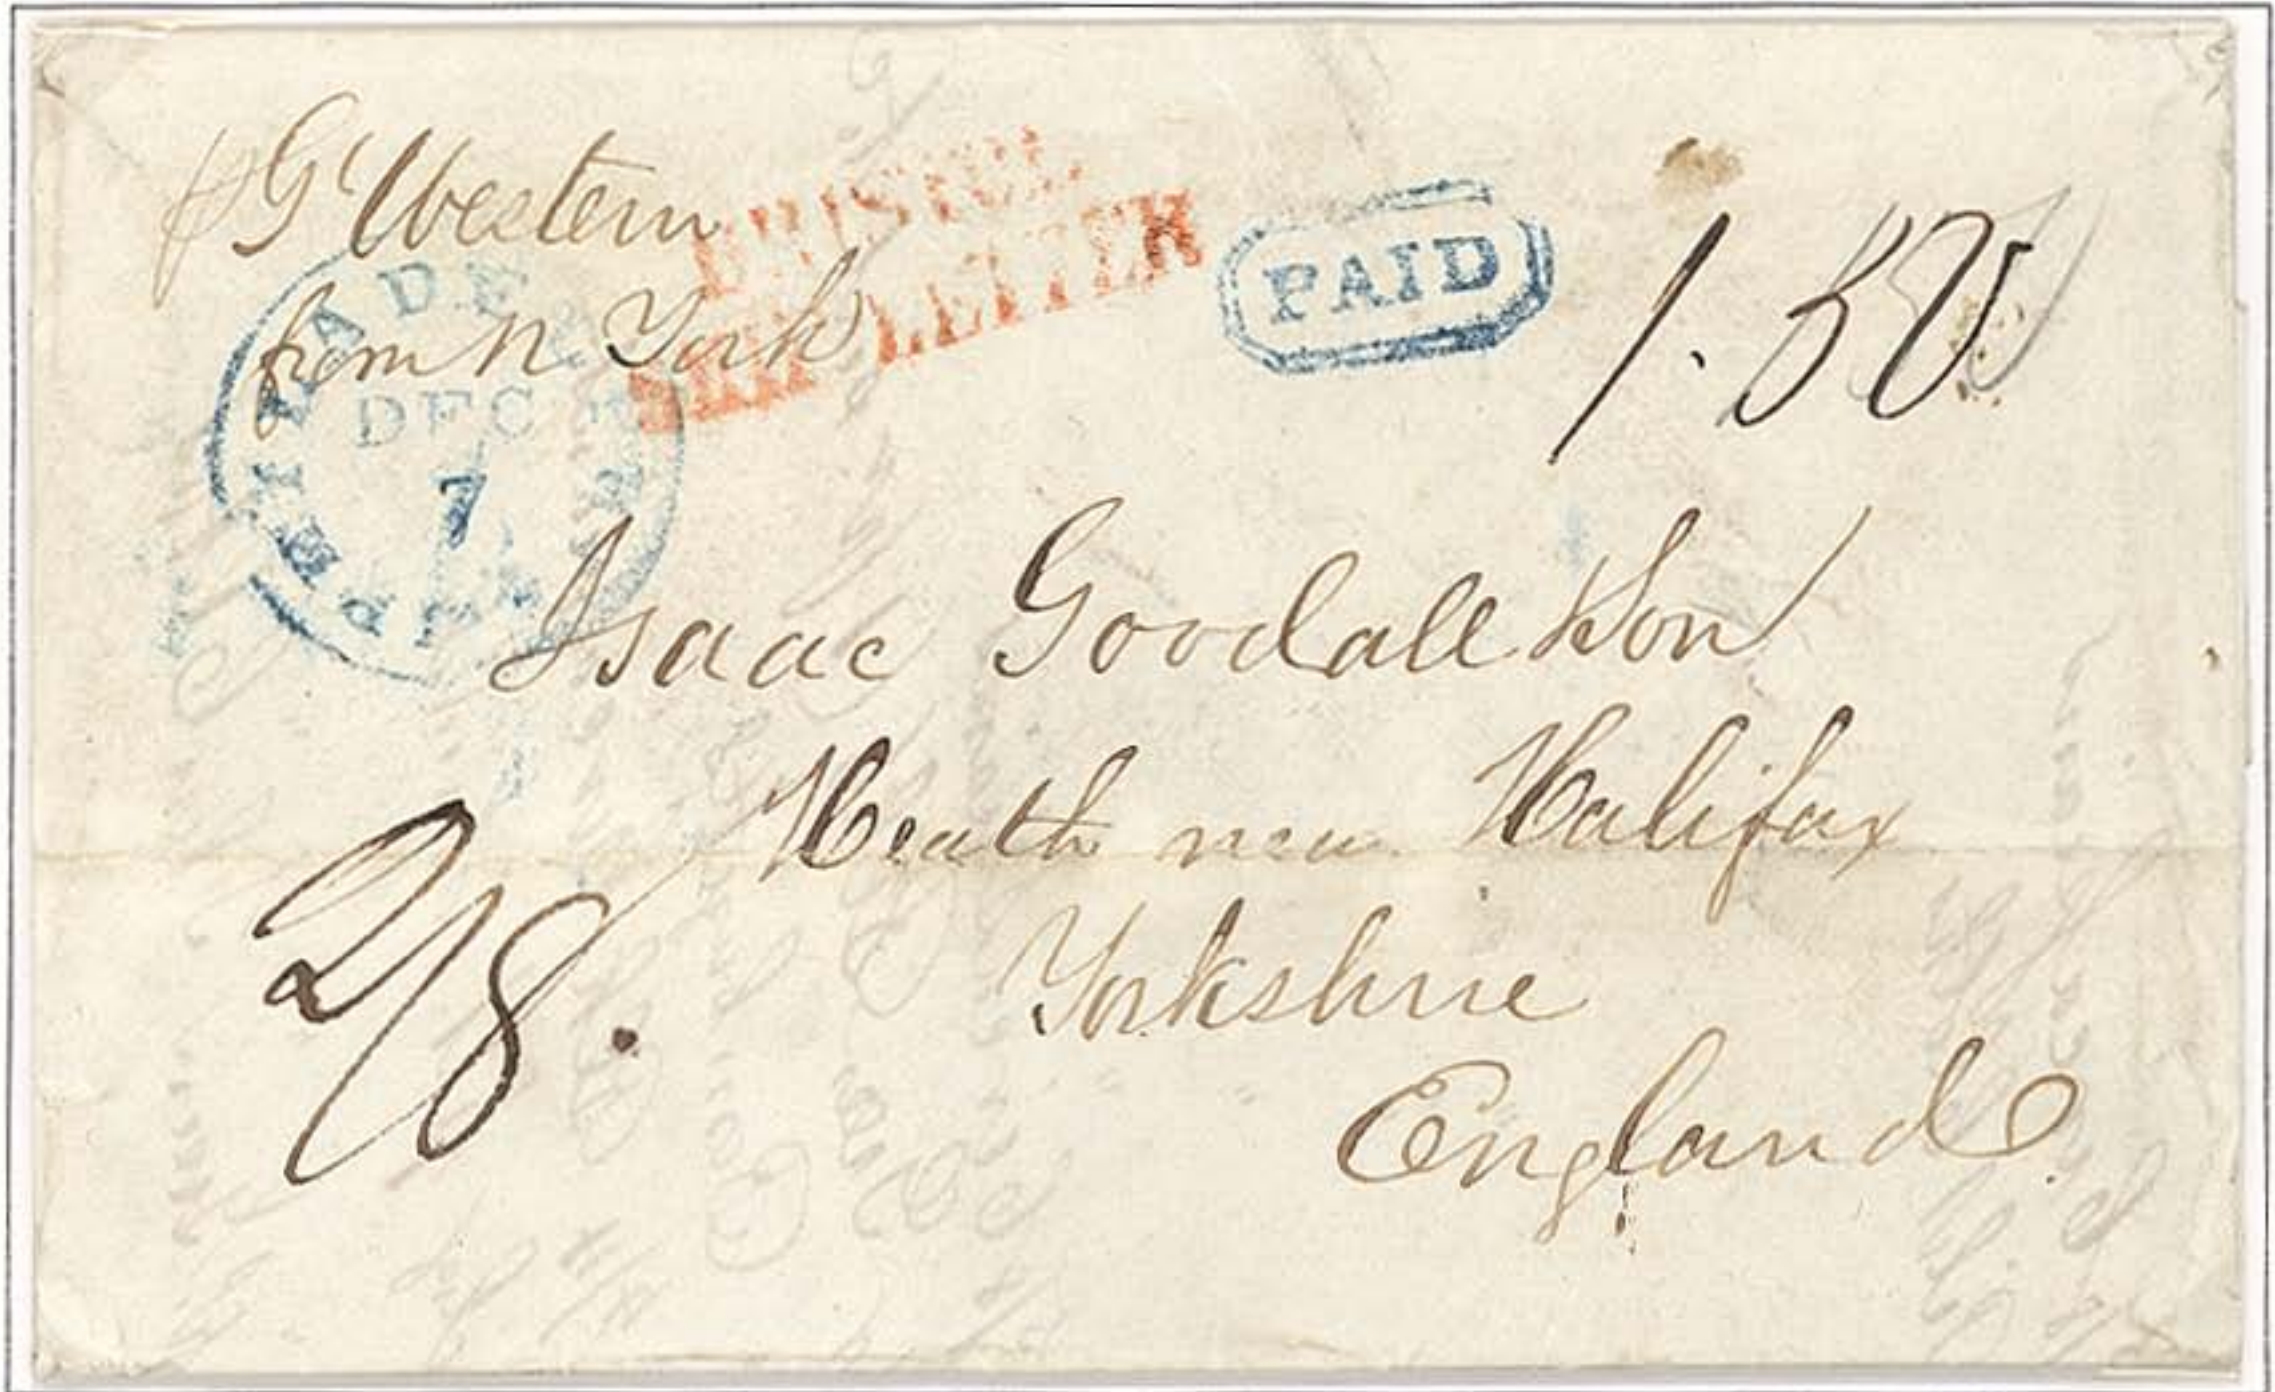 p Gt Western
from N York
BRISTOL
SHIP LETTER
PAID
PHILADELPHIA
DEC
7
Isaac Goodall & Son
Heath near Halifax
Yorkshire
England
2/8.